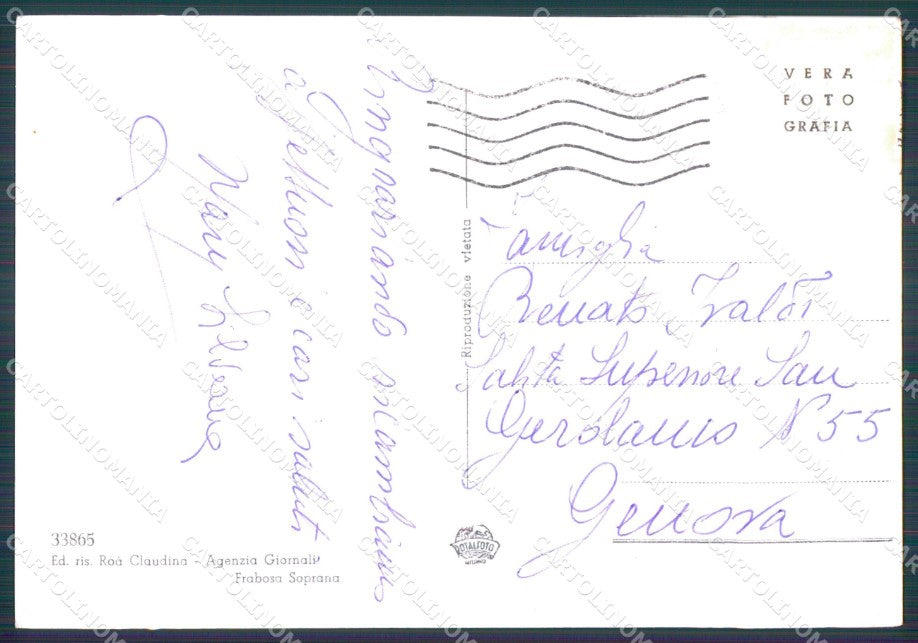 VERA
FOTO
GRAFIA
Ringraziando ricambiamo
affettuosi e cari saluti
Mary
Riproduzione vietata
Famiglia
Renato
Salita Superiore San
Gerolamo N 55
Genova
33865
Ed. ris. Roà Claudina - Agenzia Giornali
Frabosa Soprana
ROTALFOTO
MILANO
CARTOLINOMANIA